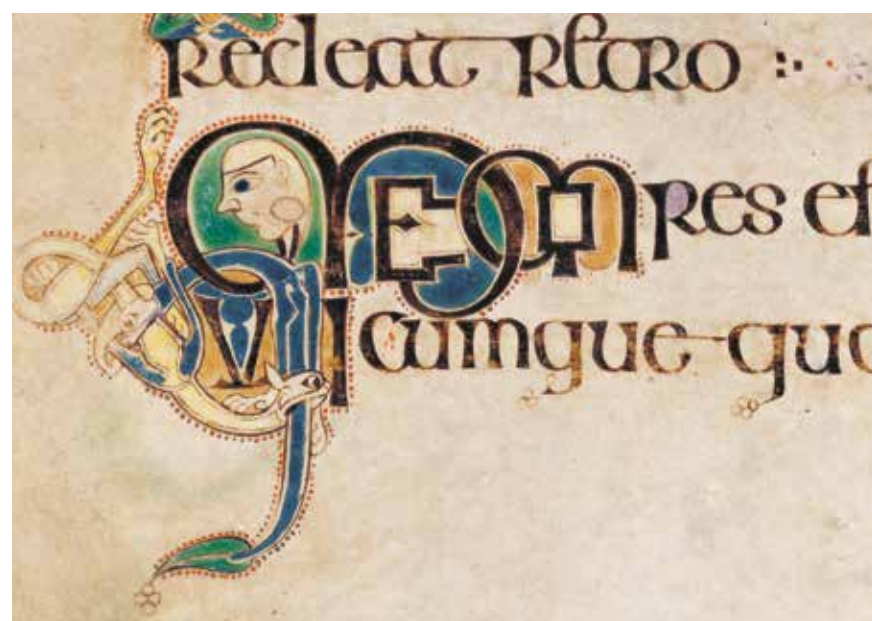 redeat retro :·
Memores e
Quicumque qu